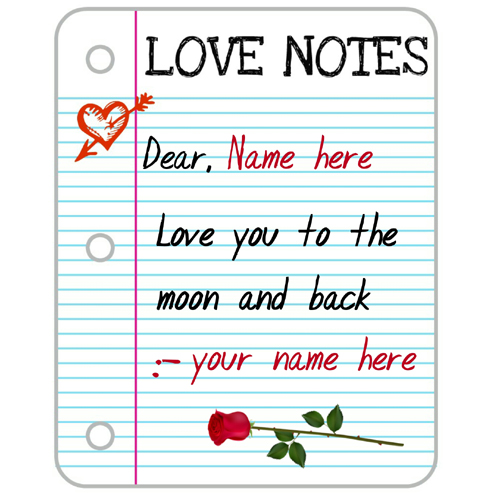 LOVE NOTES
Dear, Name here
Love you to the
moon and back
:- your name here